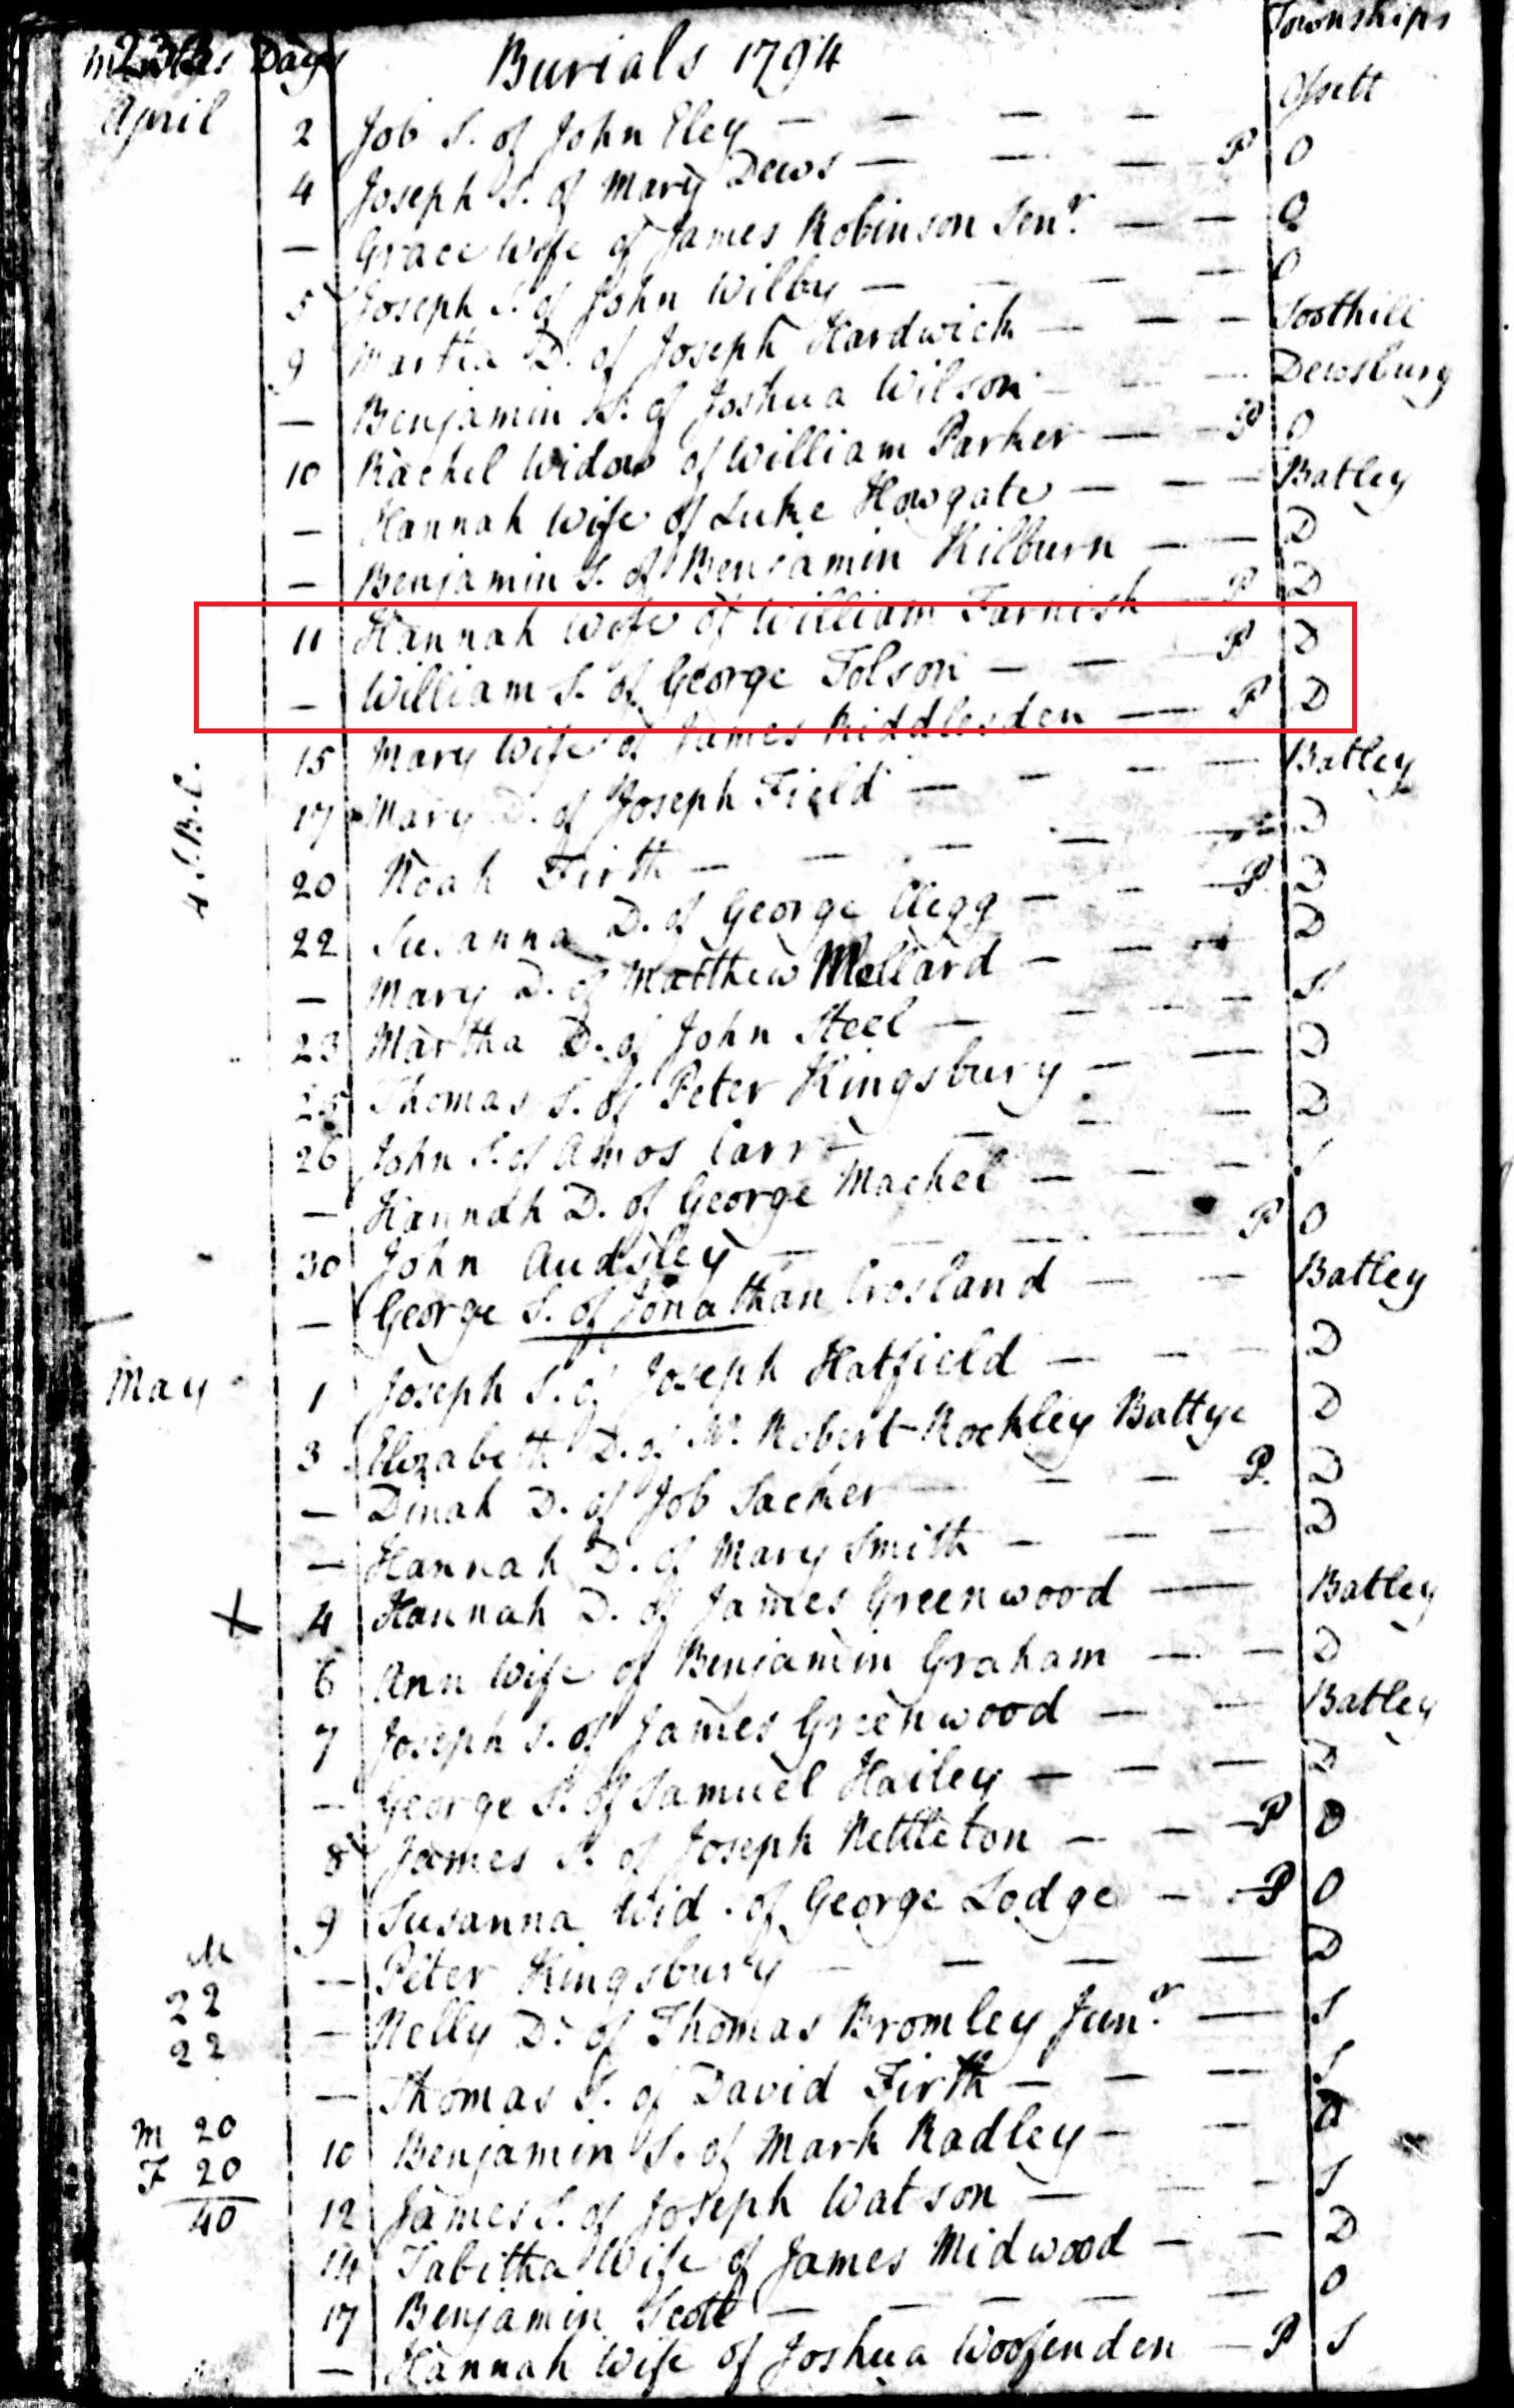 Months Days Burials 1794 Townships
April 2 Job S. of John Eley — — — — Ossett
4 Joseph S. of Mary Dews — — — P O
— Grace Wife of James Robinson Senr. — — O
5 Joseph S. of John Wilby — — — — O
9 Martha D. of Joseph Hardwick — — — Soothill
— Benjamin S. of Joshua Wilson — — — Dewsbury
10 Rachel Widow of William Parker — — P O
— Hannah Wife of Luke Howgate — — — Batley
— Benjamin S. of Benjamin Kilburn — — D
11 Hannah Wife of William Farnish — P D
— William S. of George Tolson — — — P D
15 Mary Wife of James Kiddlesden — P D
17 Mary D. of Joseph Field — — — — Batley
20 Noah Firth — — — — D
22 Susanna D. of George Clegg — — — P D
— Mary D. of Matthew Mallard — — — D
23 Martha D. of John Steel — — — — S
25 Thomas S. of Peter Kingsbury — — D
26 John S. of Amos Carr — — — — D
— Hannah D. of George Machel — — — S
30 John Audsley — — — — P O
— George S. of Jonathan Crosland — — Batley
May 1 Joseph S. of Joseph Hatfield — — — D
3 Elizabeth D. of Mr. Robert Rockley Battye D
— Dinah D. of Job Sacker — — — P. D
— Hannah D. of Mary Smith — — — D
X 4 Hannah D. of James Greenwood — Batley
6 Ann Wife of Benjamin Graham — — D
7 Joseph S. of James Greenwood — — Batley
— George S. of Samuel Hailey — — — D
8 James S. of Joseph Nettleton — — P O
9 Susanna Wid. of George Lodge — — P O
— Peter Kingsbury — — — — D
— Nelly D. of Thomas Bromley Junr. — S
— Thomas S. of David Firth — — — S
10 Benjamin S. of Mark Radley — —
12 James S. of Joseph Watson — — — S
14 Tabitha Wife of James Midwood — — D
17 Benjamin Scott — — — — O
— Hannah Wife of Joshua Woofenden — P S
M
22
22
M 20
F 20
40